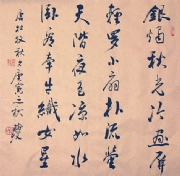 銀燭秋光冷画屏
輕羅小扇扑流螢
天階夜色涼如水
卧看牽牛織女星
唐杜牧秋夕庚寅之秋